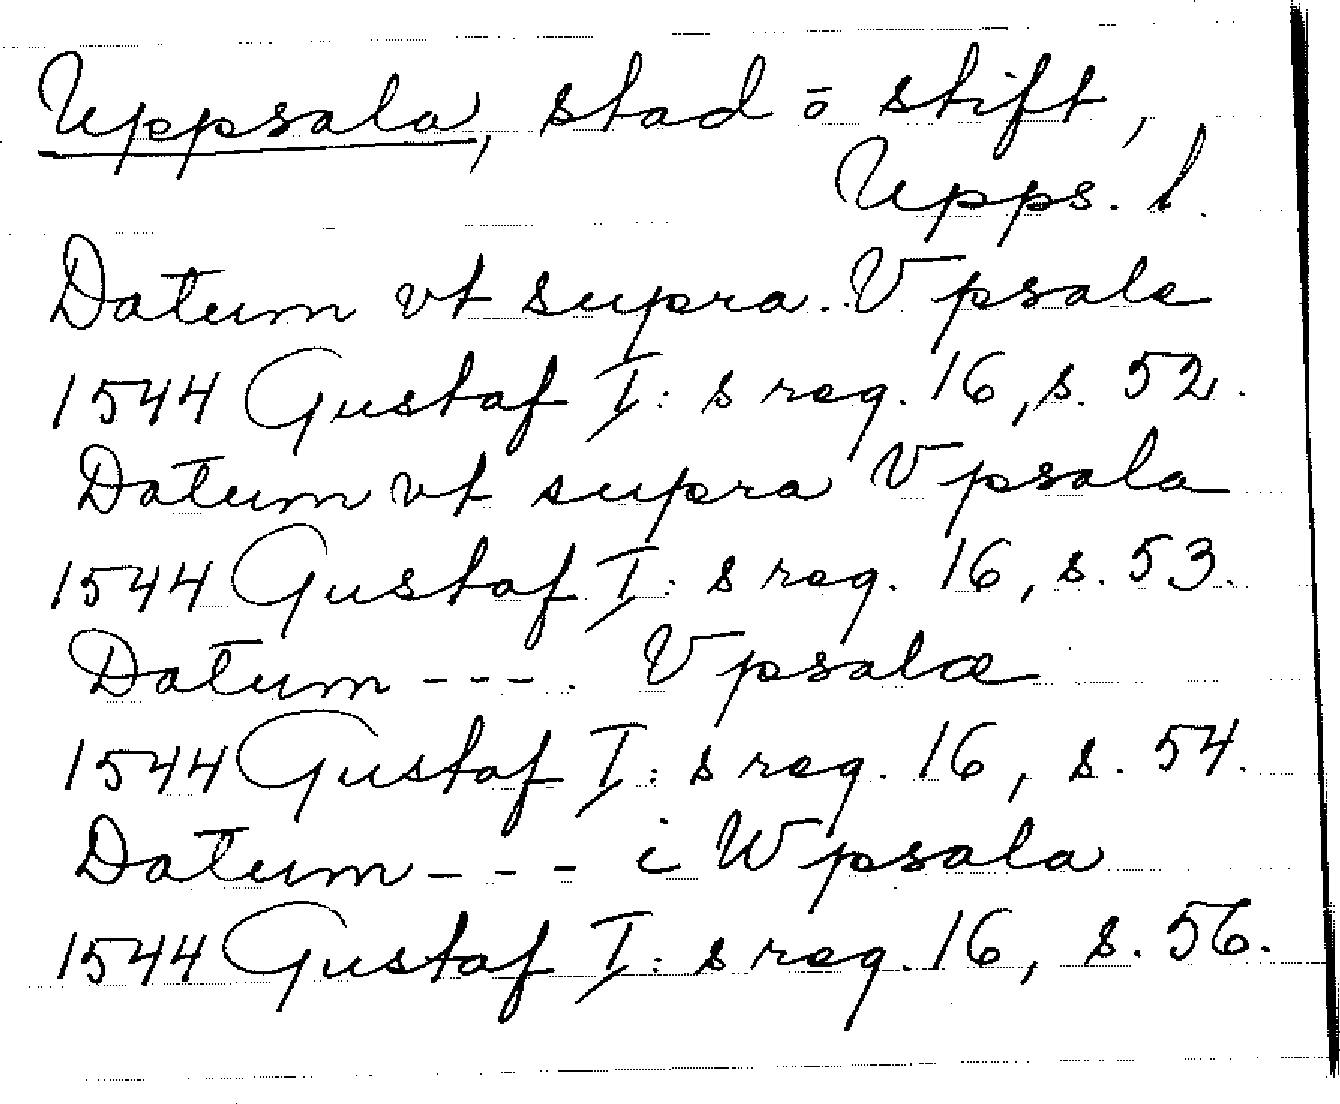 Uppsala, stad ō stift,
Upps. l.
Datum vt supra. Vpsale
1544 Gustaf I: s reg. 16, s. 52.
Datum vt supra Vpsala
1544 Gustaf I: s reg. 16, s. 53.
Datum - - - . Vpsalæ
1544 Gustaf I: s reg. 16, s. 54.
Datum - - - i Wpsala
1544 Gustaf I: s reg. 16, s. 56.